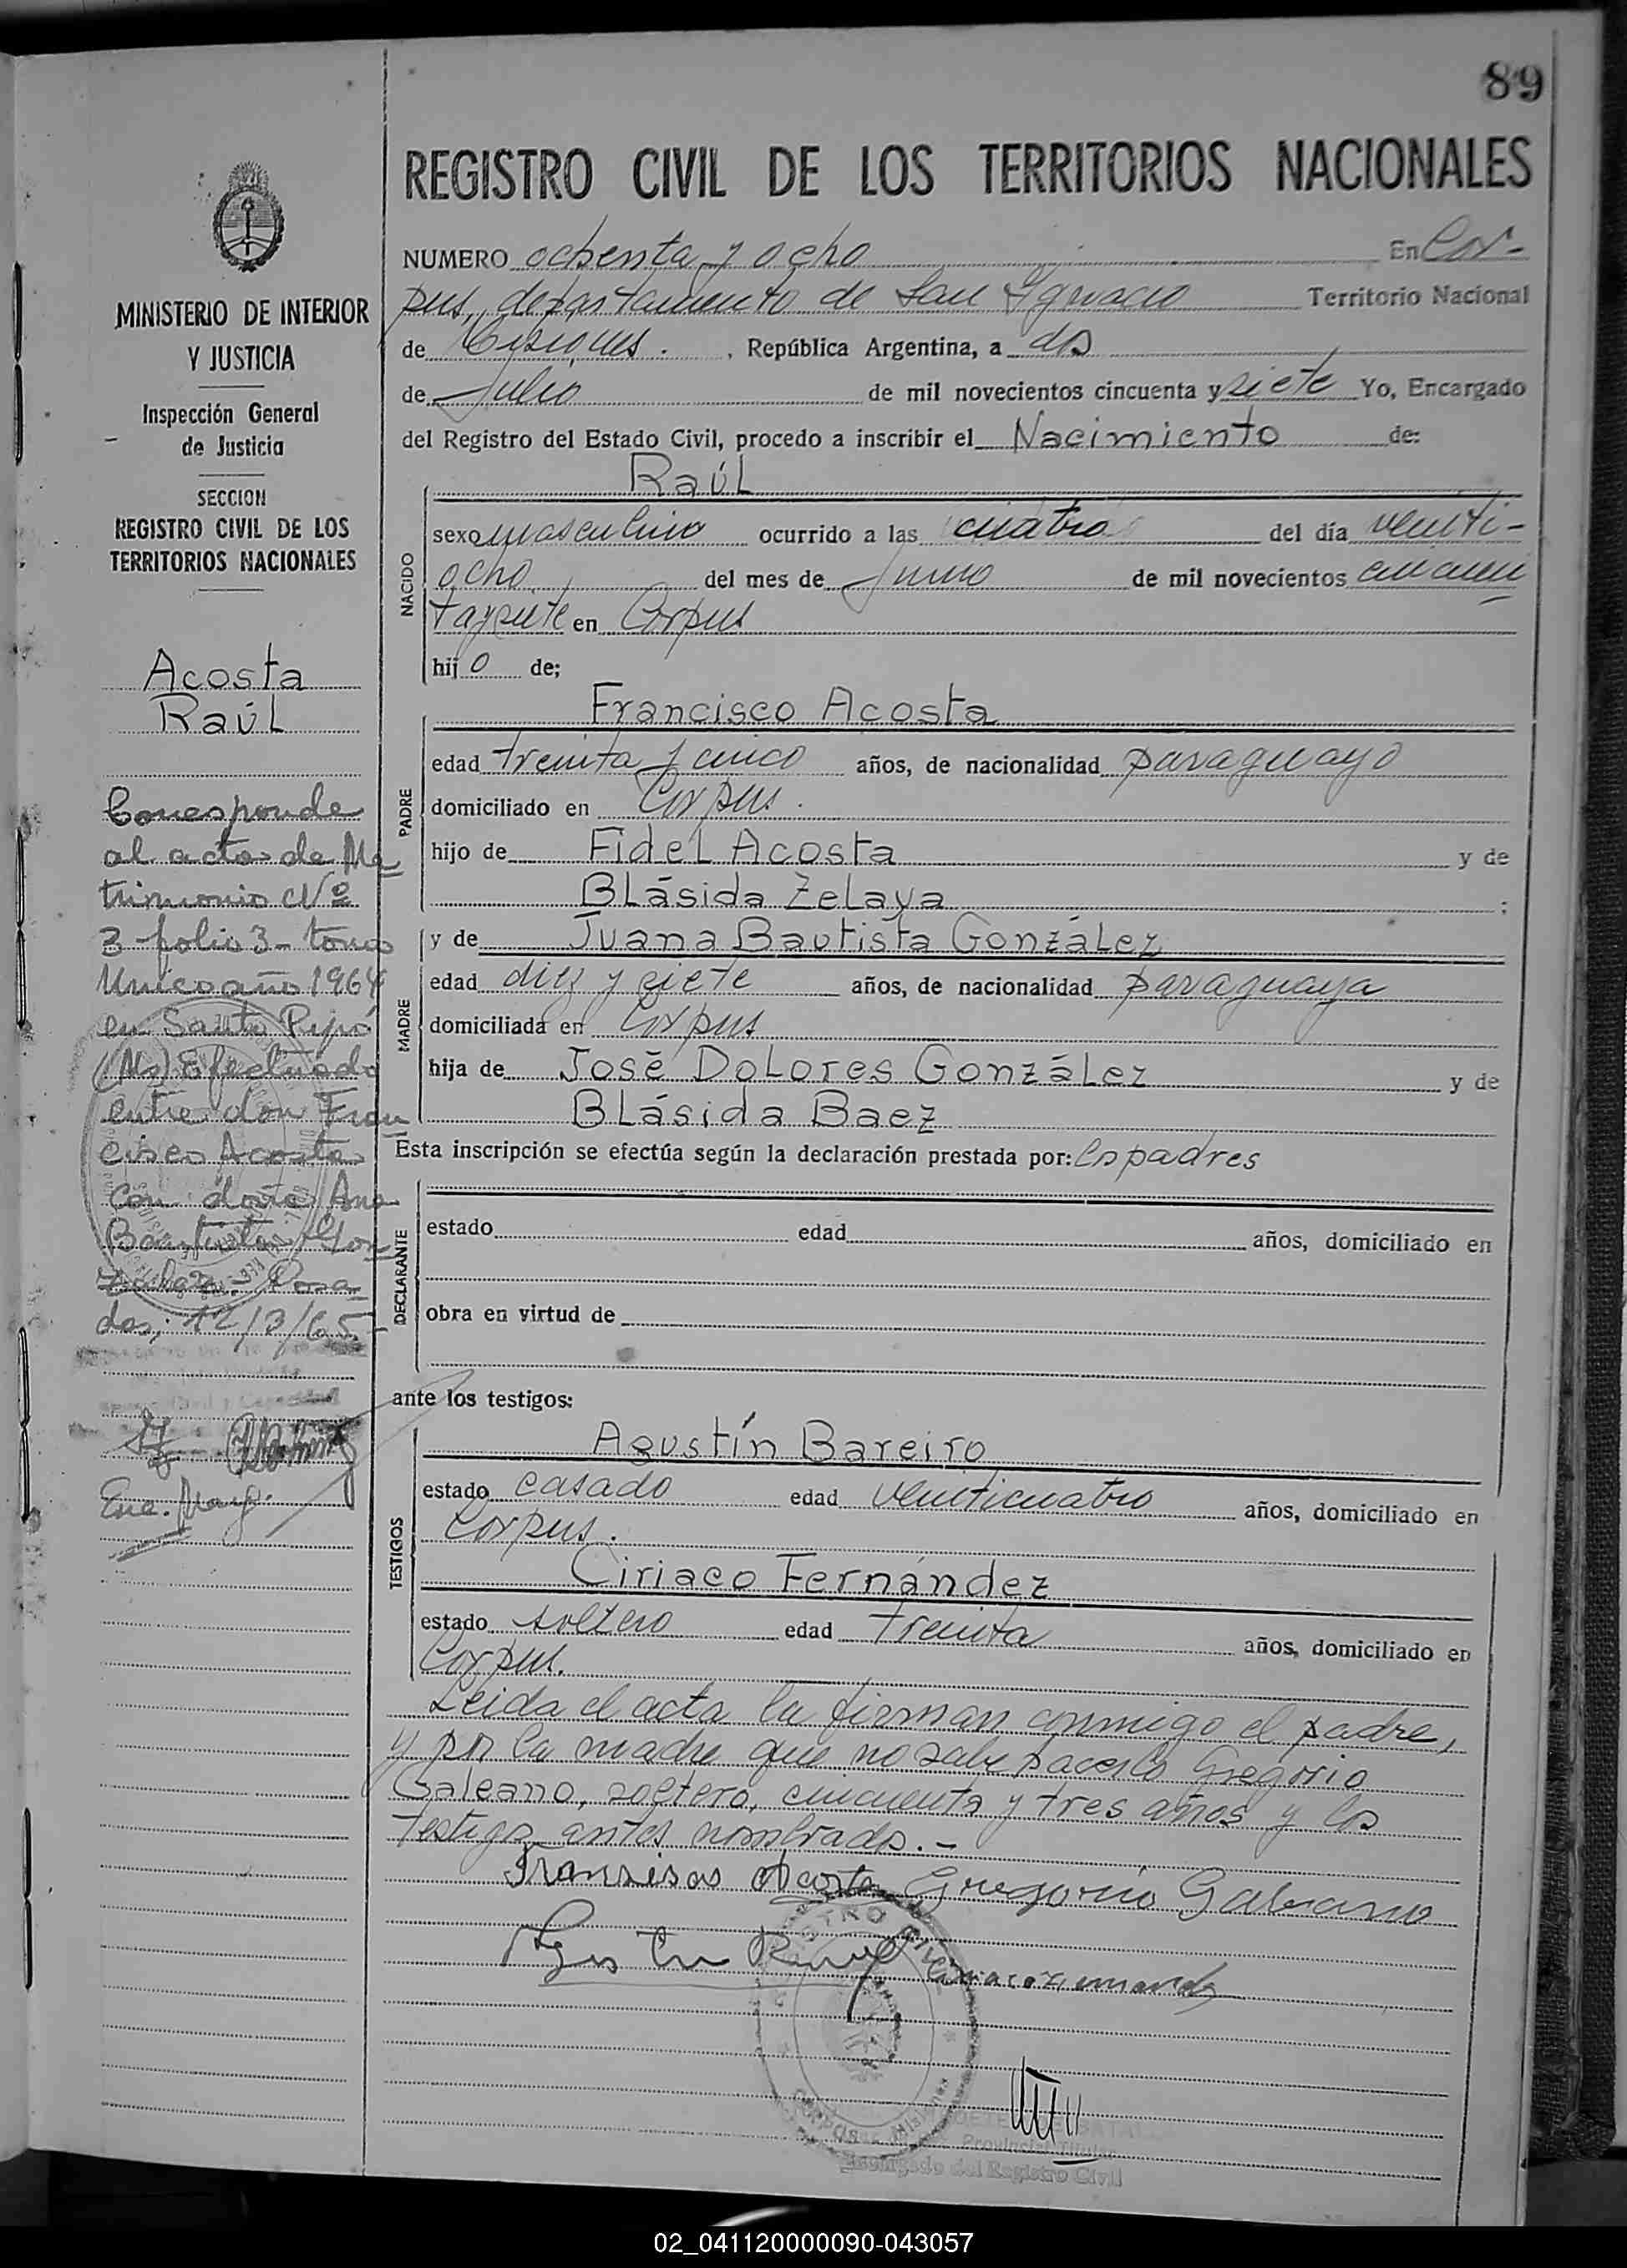 89
REGISTRO CIVIL DE LOS TERRITORIOS NACIONALES
NUMERO ochenta y ocho En Cor-
pus, departamento de San Ignacio Territorio Nacional
de Misiones. , República Argentina, a dos
de Julio de mil novecientos cincuenta y siete Yo, Encargado
del Registro del Estado Civil, procedo a inscribir el Nacimiento de:
Raúl
NACIDO
sexo masculino ocurrido a las cuatro del día veinti-
ocho del mes de Junio de mil novecientos cincuen
taysiete en Corpus
hij o de;
PADRE
Francisco Acosta
edad treinta y cinco años, de nacionalidad paraguayo
domiciliado en Corpus.
hijo de Fidel Acosta y de
Blásida Zelaya ;
MADRE
y de Juana Bautista González
edad diez y siete años, de nacionalidad paraguaya
domiciliada en Corpus
hija de José Dolores González y de
Blásida Baez
Esta inscripción se efectúa según la declaración prestada por: los padres
DECLARANTE
estado edad años, domiciliado en
obra en virtud de
ante los testigos:
TESTIGOS
Agustín Bareiro
estado casado edad veinticuatro años, domiciliado en
Corpus.
Ciriaco Fernández
estado soltero edad treinta años, domiciliado en
Corpus.
Leida el acta la firman conmigo el padre,
y por la madre que no sabe hacerlo Gregorio
Galeano, soltero, cincuenta y tres años y los
testigos antes nombrados.-
Fransisco Acosta Gregorio Galeano
Ciriaco Fernandez
Encargado del Registro Civil
MINISTERIO DE INTERIOR
Y JUSTICIA
Inspección General
de Justicia
SECCION
REGISTRO CIVIL DE LOS
TERRITORIOS NACIONALES
Acosta
Raúl
Corresponde
al acta de Ma
trimonio Nº
3 folio 3- tomo
Unico año 1964
en Santo Pipó
(Ms) Efectuado
entre don Fran
cisco Acosta
con doña Ana
Bautista Gon
zalez.- Posa
das, 12/3/65.-
02_041120000090-043057